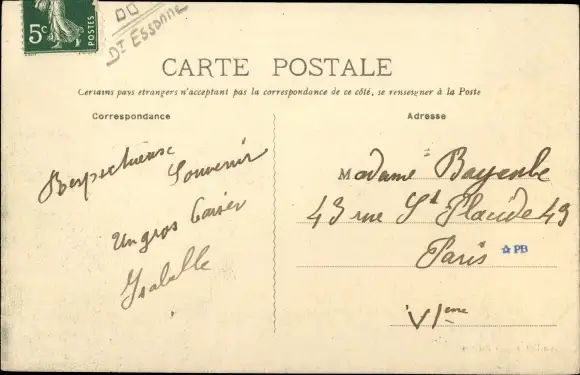 5c POSTES
Dt ESSONNE
CARTE POSTALE
Certains pays étrangers n'acceptant pas la correspondance de ce côté, se renseigner à la Poste
Correspondance
Adresse
Respectueux Souvenir
Un gros baiser
Isabelle
Madame
43 rue St Placide 43
Paris
PB
VIeme